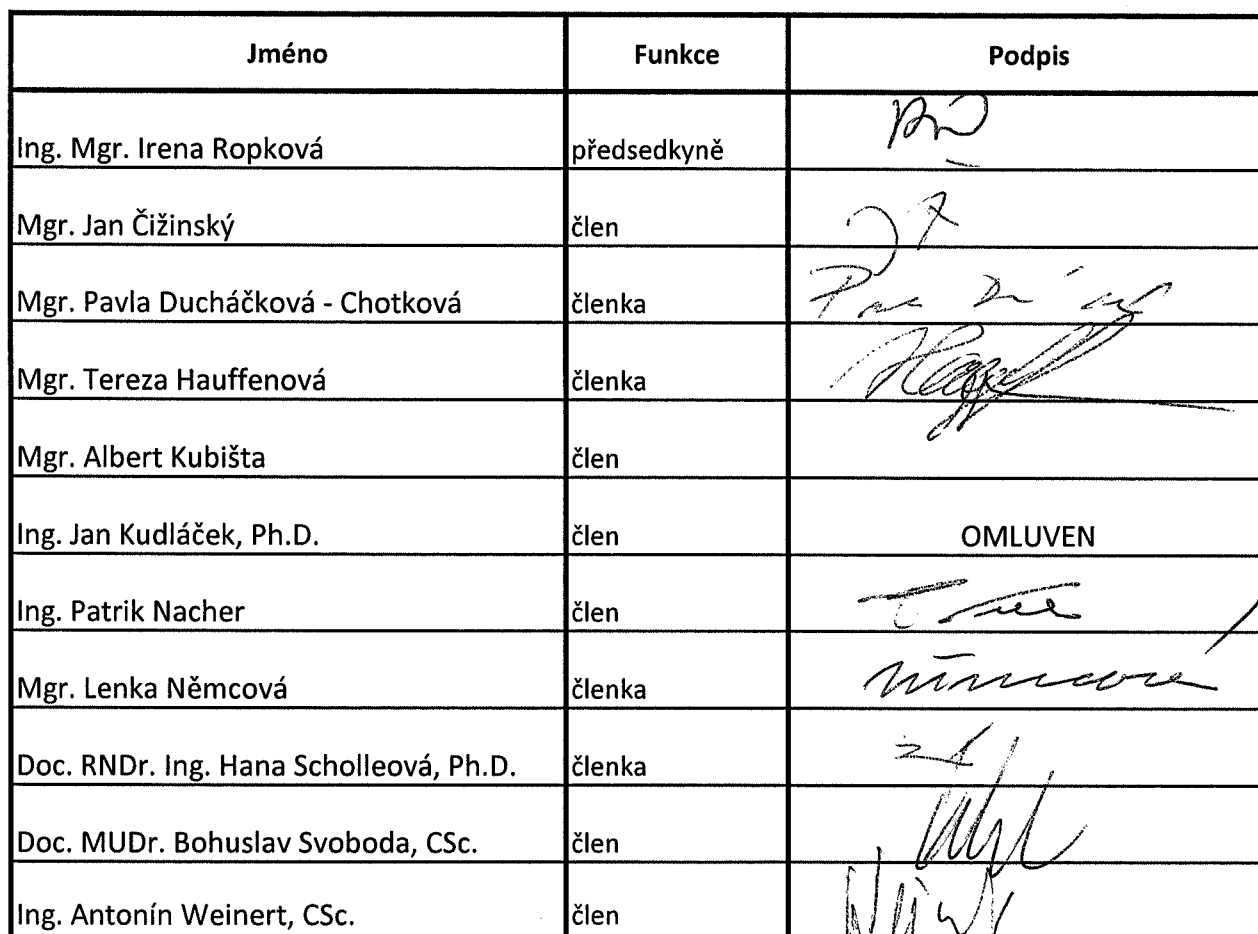 Jméno Funkce Podpis
Ing. Mgr. Irena Ropková předsedkyně
Mgr. Jan Čižinský člen
Mgr. Pavla Ducháčková - Chotková členka
Mgr. Tereza Hauffenová členka
Mgr. Albert Kubišta člen
Ing. Jan Kudláček, Ph.D. člen OMLUVEN
Ing. Patrik Nacher člen
Mgr. Lenka Němcová členka Němcová
Doc. RNDr. Ing. Hana Scholleová, Ph.D. členka
Doc. MUDr. Bohuslav Svoboda, CSc. člen
Ing. Antonín Weinert, CSc. člen